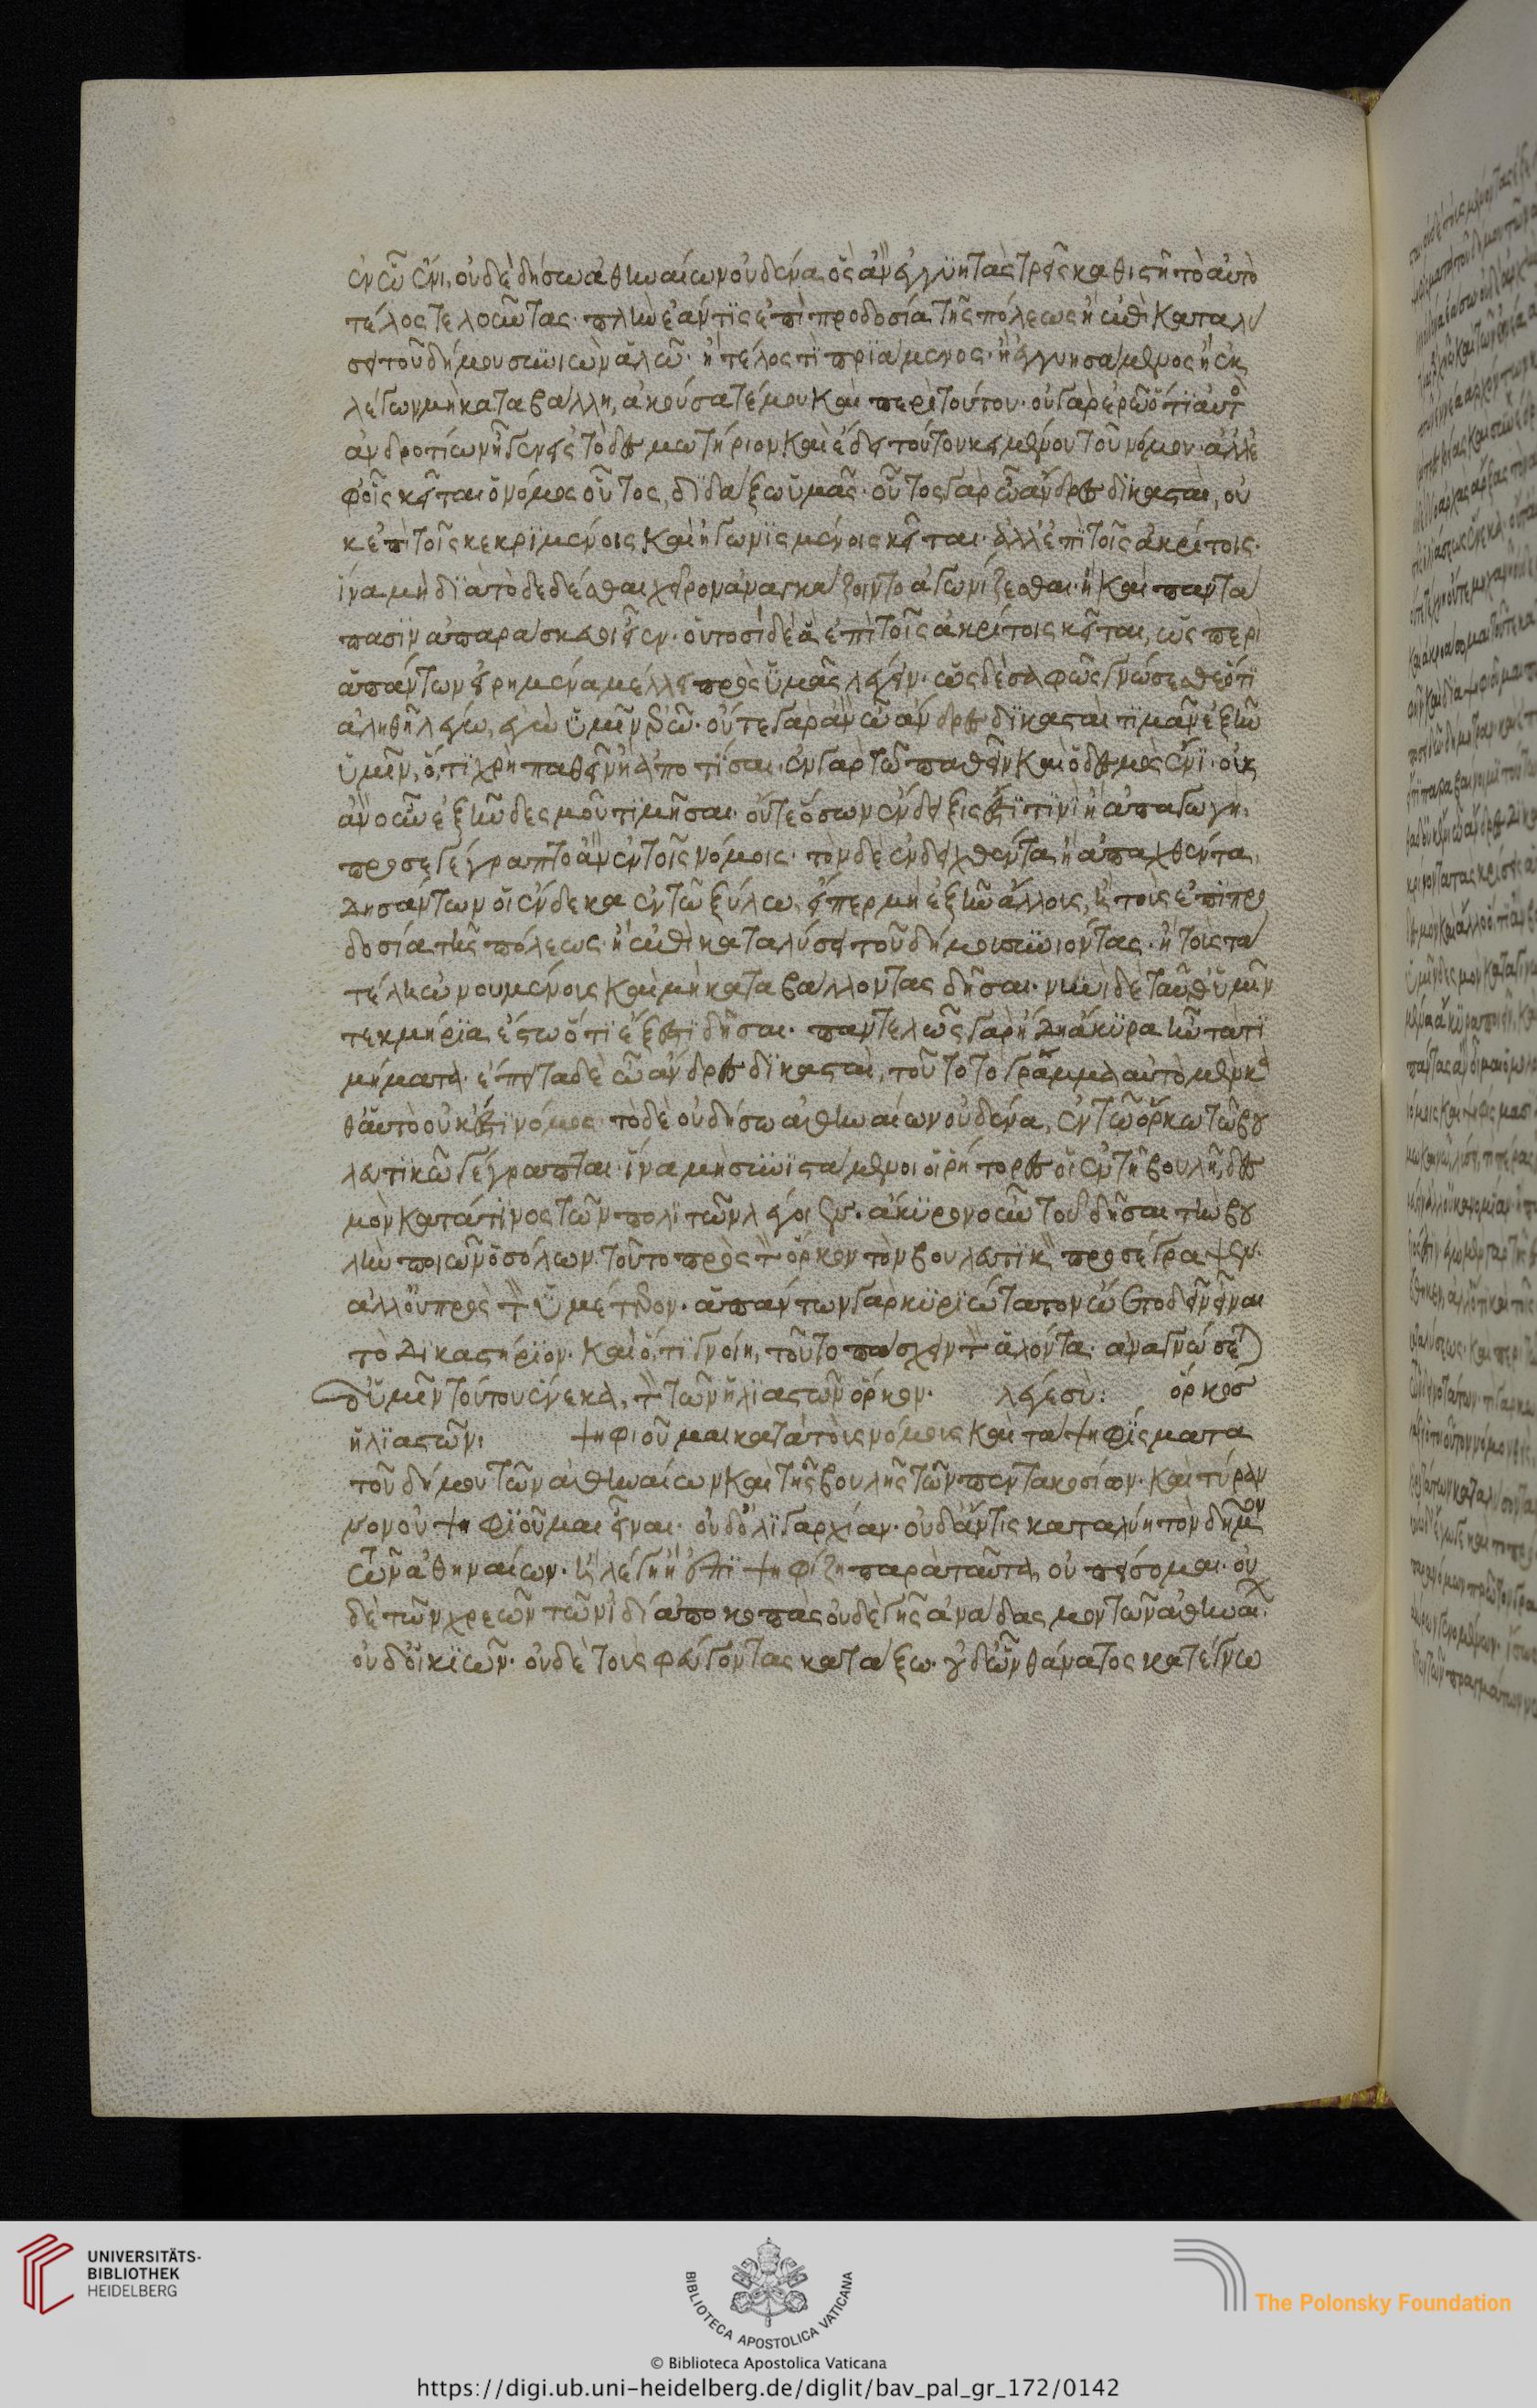 ἐν ᾧ ἔνι, οὐδὲ δήσω ἀθηναίων οὐδένα, ὃς ἂν ἐγγυητὰς τρεῖς καθιστῇ τὸ αὐτὸ
τέλος τελοῦντας· πλὴν ἐάν τις ἐπὶ προδοσία τῆς πόλεως ἢ ἐπὶ καταλύ
σει τοῦ δήμου συνιὼν ἁλῷ· ἢ τέλος τι πριάμενος· ἢ ἐγγυησάμενος ἢ ἐκ
λέγων μὴ καταβάλλη, ἀκούσατέ μου καὶ περὶ τούτου· οὐ γὰρ ἐρῶ ὅτι αὐτὸς
ἀνδροτίων ἦγεν εἰς τὸ δεσμωτήριον καὶ ἔδει τούτου κειμένου τοῦ νόμου· ἀλλ' ἐ
φ' οἷς κεῖται ὁ νόμος οὗτος, διδάξω ὑμᾶς· οὗτος γὰρ ὦ ἄνδρες δικασταὶ, οὐ
κ ἐπὶ τοῖς κεκριμένοις καὶ ἠγωνισμένοις κεῖται· ἀλλ' ἐπὶ τοῖς ἀκρίτοις·
ἵνα μὴ διὰ τὸ δεδέσθαι χεῖρον ἀναγκάζοιντο ἀγωνίζεσθαι· ἢ καὶ παντά
πασιν ἀπαράσκευοι εἶεν· οὑτοσὶ δὲ ἃ ἐπὶ τοῖς ἀκρίτοις κεῖται, ὡς περὶ
ἁπάντων εἰρημένα μέλλει πρὸς ὑμᾶς λέγειν· ὡς δὲ σαφῶς γνώσεσθε ὅτι
ἀληθῆ λέγω, ἐγὼ ὑμῖν ἐρῶ· οὔτε γὰρ ἂν ὦ ἄνδρες δικασταὶ τιμᾶν ἐξῆν
ὑμῖν, ὅ,τι χρὴ παθεῖν ἢ ἀποτίσαι· ἐν γὰρ τῷ παθεῖν καὶ ὁ δεσμὸς ἔνι· οὐκ
ἂν οὖν ἐξῆν δεσμοῦ τιμῆσαι· οὔτε ὅσων ἔνδειξίς ἐστί τινι ἢ ἀπαγωγὴ,
προσεγέγραπτο ἂν ἐν τοῖς νόμοις· τὸν δὲ ἐνδειχθέντα ἢ ἀπαχθέντα,
δησάντων οἱ ἕνδεκα ἐν τῷ ξύλω, εἴπερ μὴ ἐξῆν ἄλλους, ἢ τοὺς ἐπὶ προ
δοσία τῆς πόλεως ἢ ἐπὶ καταλύσει τοῦ δήμου συνιόντας· ἢ τοὺς τὰ
τέλη ὠνουμένους καὶ μὴ καταβάλλοντας δῆσαι· νυνὶ δὲ ταῦθ' ὑμῖν
τεκμήρια ἔστω ὅτι ἔξεστι δῆσαι· παντελῶς γὰρ ἤδη ἄκυρα ἦν τὰ τι
μήματα· ἔπειτα δὲ ὦ ἄνδρες δικασταὶ, τοῦτο τὸ γράμμα αὐτὸ μὲν κα
θ' αὑτὸ οὐκ ἔστι νόμος· τὸ δὲ οὐ δήσω ἀθηναίων οὐδένα, ἐν τῷ ὅρκω τῷ βου
λευτικῷ γέγραπται· ἵνα μὴ συνιστάμενοι οἱ ῥήτορες οἱ ἐν τῇ βουλῇ, δεσ
μὸν κατά τινος τῶν πολιτῶν λέγοιεν· ἄκυρον οὖν τοῦ δῆσαι τὴν βου
λὴν ποιῶν ὁ σόλων τοῦτο πρὸς τὸν ὅρκον τὸν βουλευτικὸν προσέγραψεν·
ἀλλ' οὐ πρὸς τὸν ὑμέτερον· ἁπάντων γὰρ κυριώτατον ᾤετο δεῖν εἶναι
τὸ δικαστήριον· καὶ ὅ,τι γνοίη, τοῦτο πάσχειν τὸν ἁλόντα· ἀναγνώσεται
δ' ὑμῖν τούτου ἕνεκα, τὸν τῶν ἡλιαστῶν ὅρκον· λέγε σὺ: ὅρκος
ἡλιαστῶν: ψηφιοῦμαι κατὰ τοὺς νόμους καὶ τὰ ψηφίσματα
τοῦ δήμου τῶν ἀθηναίων καὶ τῆς βουλῆς τῶν πεντακοσίων· καὶ τύραν
νον οὐ ψηφιοῦμαι εἶναι· οὐδ' ὀλιγαρχίαν· οὐδ' ἄν τις καταλύη τὸν δῆμον
τῶν ἀθηναίων· ἢ λέγη ἢ ἐπιψηφίζη παρὰ ταῦτα, οὐ πείσομαι· οὐ
δὲ τῶν χρεῶν τῶν ἰδίων ἀποκοπὰς οὐδὲ γῆς ἀναδασμὸν τῶν ἀθηναίων
οὐδ' οἰκιῶν· οὐδὲ τοὺς φεύγοντας κατάξω· οὐδ' ὧν θάνατος κατέγνω
UNIVERSITÄTS-
BIBLIOTHEK
HEIDELBERG
BIBLIOTECA APOSTOLICA VATICANA
The Polonsky Foundation
© Biblioteca Apostolica Vaticana
https://digi.ub.uni-heidelberg.de/diglit/bav_pal_gr_172/0142